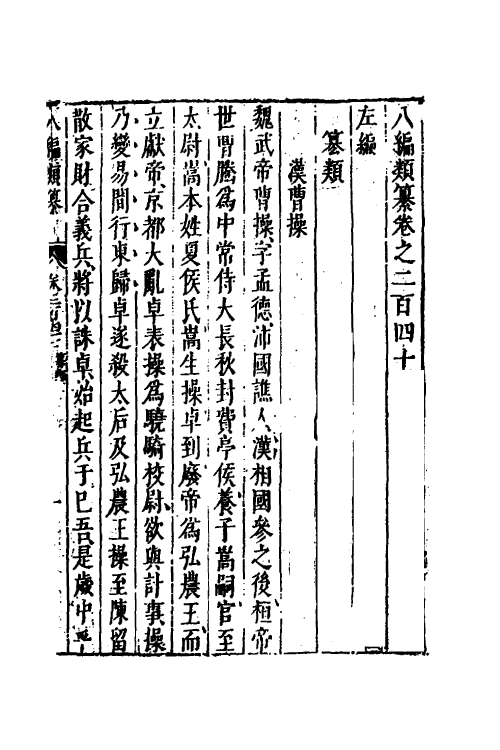 八編類纂卷之二百四十
左編
篡類
漢曹操
魏武帝曹操字孟德沛國譙人漢相國參之後桓帝
世曹騰爲中常侍大長秋封費亭侯養子嵩嗣官至
太尉嵩本姓夏侯氏嵩生操卓到廢帝爲弘農王而
立獻帝京都大亂卓表操爲驍騎校尉欲與計事操
乃變易間行東歸卓遂殺太后及弘農王操至陳留
散家財合義兵將以誅卓始起兵于巳吾是歲中平
八編類纂
一